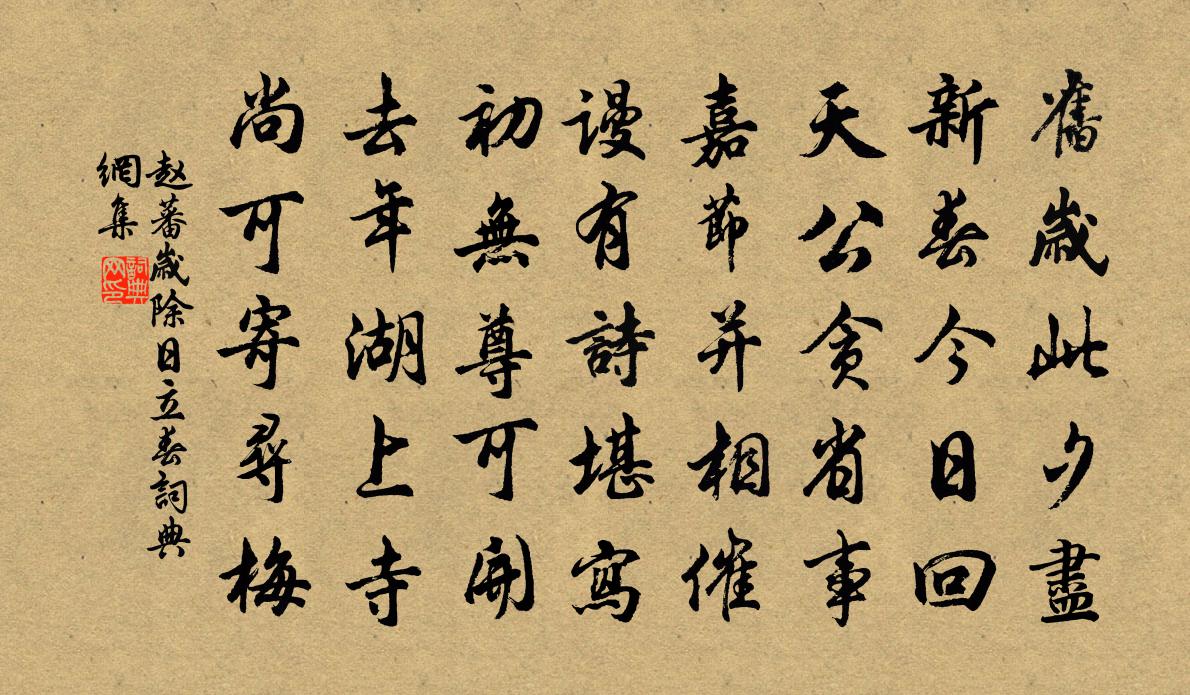 舊歲此夕盡
新春今日回
天公貪省事
嘉節并相催
謾有詩堪寫
初無尊可開
去年湖上寺
尚可寄尋梅
赵蕃歲除日立春詞典
網集
詞典
网印